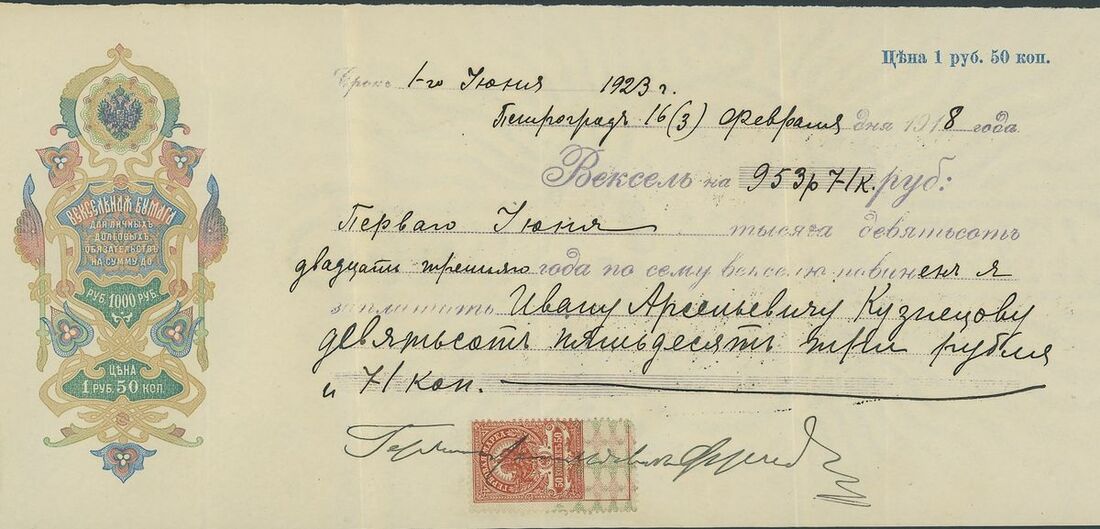 Цѣна 1 руб. 50 коп.
Срокъ 1-го Июня 1923 г.
Петроградъ 16 (3) Февраля дня 1918 года
Вексель на 953 р 71 к. руб:
Перваго Июня тысяча девятьсотъ
двадцать третьяго года по сему векселю повиненъ я
заплатить Ивану Арсеньевичу Кузнецову
девятьсотъ пятьдесятъ три рубля
и 71 коп.
ВЕКСЕЛЬНАЯ БУМАГА
ДЛЯ ЛИЧНЫХЪ
ДОЛГОВЫХЪ
ОБЯЗАТЕЛЬСТВЪ
НА СУММУ ДО
РУБ. 1000 РУБ.
ЦѢНА
1 РУБ. 50 КОП.
ГЕРБОВАЯ МАРКА
50 КОПѢЕКЪ 50